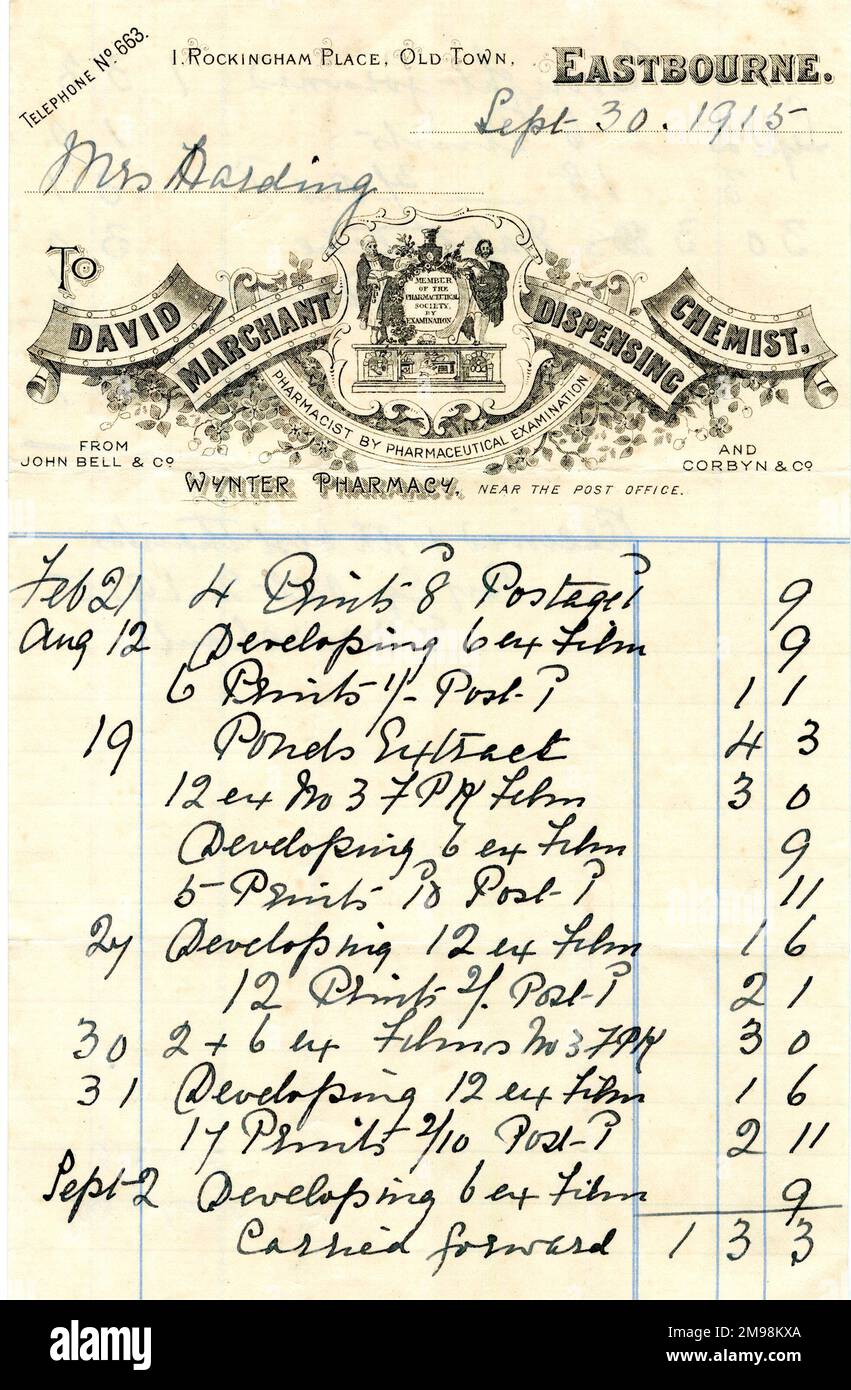 TELEPHONE No 663.
1. ROCKINGHAM PLACE, OLD TOWN, EASTBOURNE.
Sept 30. 1915
Mrs Harding
TO
DAVID MARCHANT DISPENSING CHEMIST.
MEMBER
OF THE
PHARMACEUTICAL
SOCIETY
BY
EXAMINATION
PHARMACIST BY PHARMACEUTICAL EXAMINATION
FROM
JOHN BELL & Co
AND
CORBYN & Co
WYNTER PHARMACY, NEAR THE POST OFFICE.
Feb 21 4 Prints 8 Postage 1 9
Aug 12 Developing 6 ex Film 9
6 Prints 1/- Post 1 1 1
19 Ponds Extract 4 3
12 ex No 3 FPK Film 3 0
Developing 6 ex Film 9
5 Prints 10 Post 1 11
27 Developing 12 ex Film 1 6
12 Prints 2/. Post 1 2 1
30 2 + 6 ex Films No 3 FPK 3 0
31 Developing 12 ex Film 1 6
17 Prints 2/10 Post 1 2 11
Sept 2 Developing 6 ex Film 9
Carried forward 1 3 3
alamy
Image ID: 2M98KXA
www.alamy.com